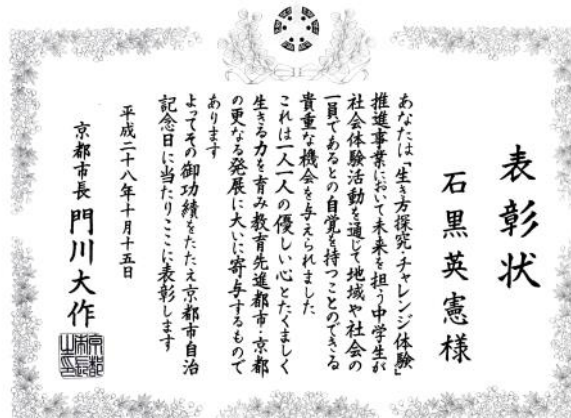 表彰状
石黒英憲様
あなたは「生き方探究・チャレンジ体験」
推進事業において未来を担う中学生が
社会体験活動を通じて地域や社会の
一員であるとの自覚を持つことのできる
貴重な機会を与えられました
これは一人一人の優しい心とたくましく
生きる力を育み教育先進都市・京都
の更なる発展に大いに寄与するもので
あります
よってその御功績をたたえ京都市自治
記念日に当たりここに表彰します
平成二十八年十月十五日
京都市長 門川大作
京都市長之印